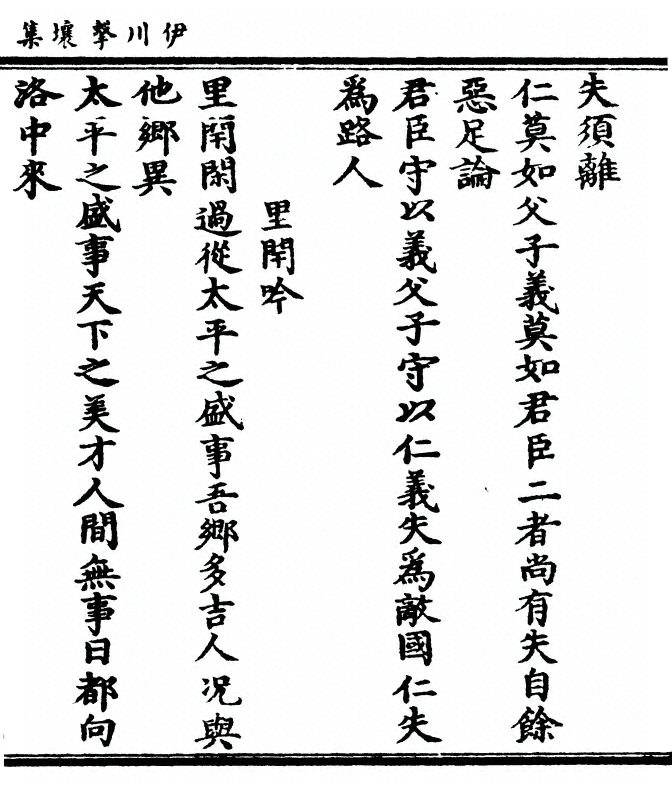 伊川擊壤集
失須離
仁莫如父子義莫如君臣二者尚有失自餘
惡足論
君臣守以義父子守以仁義失為敵國仁失
為路人
里閈吟
里閈閑過從太平之盛事吾鄉多吉人况與
他鄉異
太平之盛事天下之美才人間無事日都向
洛中來